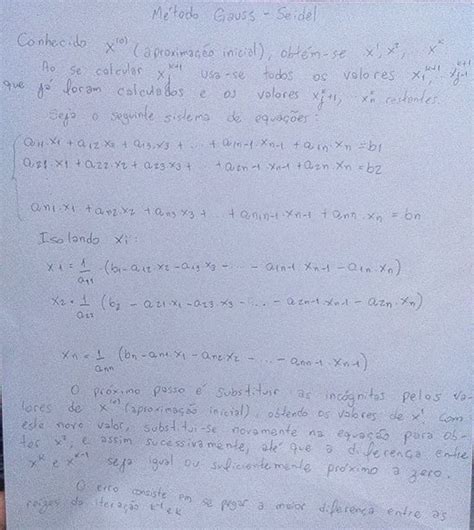 Método Gauss - Seidel
Conhecido x⁽⁰⁾ (aproximação inicial), obtém-se x¹, x², xᵏ
Ao se calcular xⱼᵏ⁺¹ usa-se todos os valores x₁ᵏ⁺¹, xⱼ₋₁ᵏ⁺¹
que já foram calculados e os valores xⱼ₊₁ᵏ, xₙᵏ restantes.
Seja o seguinte sistema de equações:
a11.x1 + a12.x2 + a13.x3 + ... + a1n-1.xn-1 + a1n.xn = b1
a21.x1 + a22.x2 + a23.x3 + ... + a2n-1.xn-1 + a2n.xn = b2
an1.x1 + an2.x2 + an3.x3 + ... + ann-1.xn-1 + ann.xn = bn
Isolando xi:
x1 = 1/a11 .(b1 - a12.x2 - a13.x3 - ... - a1n-1 xn-1 - a1n.xn)
x2 = 1/a22 (b2 - a21.x1 - a23.x3 - ... - a2n-1.xn-1 - a2n.xn)
xn = 1/ann (bn - an1.x1 - an2x2 - ... - ann-1.xn-1)
O próximo passo é substituir as incógnitas pelos va-
lores de x⁽⁰⁾ (aproximação inicial), obtendo os valores de x¹. Com
este novo valor, substitui-se novamente na equação para ob-
ter x², e assim sucessivamente, até que a diferença entre
xᵏ e xᵏ⁻¹ seja igual ou suficientemente próximo a zero.
O erro consiste em se pegar a maior diferença entre as
raízes da iteração k-1 e k